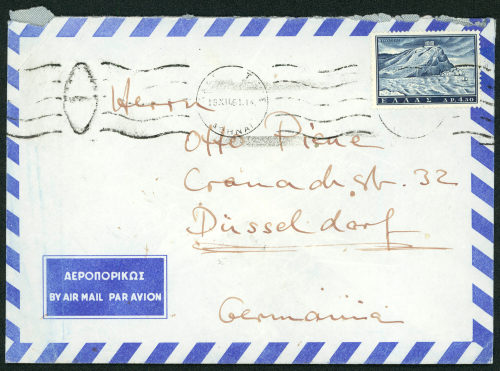 ΕΛΛΑΣ ΔΡ. 4.50
ΑΘΗΝΑΙ
Herrn
Otto Piene
Cranachstr. 32
Düsseldorf
Germania
ΑΕΡΟΠΟΡΙΚΩΣ
BY AIR MAIL PAR AVION